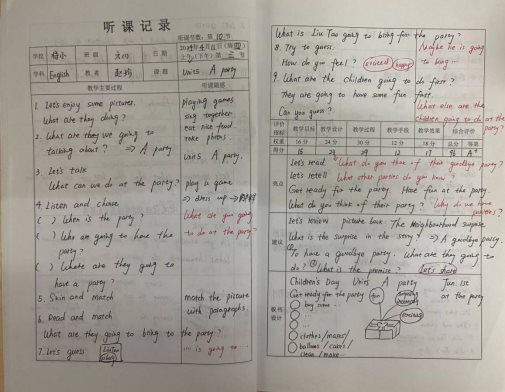 听课记录
听课节数：第10节
学校
班级
日期
2024年4月
上午(下午)第三节
学科 English 教者 课题 Unit5 A party
教学主要过程 听课随感
1. Let's enjoy some pictures. playing games
What are they doing? sing together
eat nice food
2. What are they going to take photos
talking about? ⇒ A party Unit5 A party.
3. Let's talk
What can we do at the party? play a game
⇒ dress up
4. Listen and choose
( ) When is the party? What are you going
to do at the party?
( ) Who are going to have the
party?
( ) Where are they going to
have a party?
5. Skin and match match the picture
with paragraphs.
6. Read and match
What are they going to bring to the party?
7. Let's guess Liu Tao is going to ...
What is Liu Tao going to bring for the party?
8. Try to guess. Maybe he is going
How do you feel? excited happy to bring ...
9. What are the children going to do first?
They are going to have some fun first.
Can you guess? What else are the
children going to do at the
party?
评价指标 教学目标 教学设计 教学过程 教学手段 教学效果 综合评价
权重 16分 24分 30分 12分 18分 总分 等第
得分 16 23 29 12 17
亮点
Let's read What do you think of their goodbye party?
Let's retell What other parties do you know?
Get ready for the party Have fun at the party
What do you think of their party? Why do we have
parties?
建议
Let's review picture book: The Neighbourhood surprise.
What is the surprise in the story? ⇒ A goodbye party.
To have a goodbye party. What are they going to
do? What is the promise? Let's share
板书设计
Children's Day Unit5 A party Jun. 1st
Get ready for the party fun at the party
buy some ...
...
...
clothes / masks /
balloons / cakes /
clean / make ...